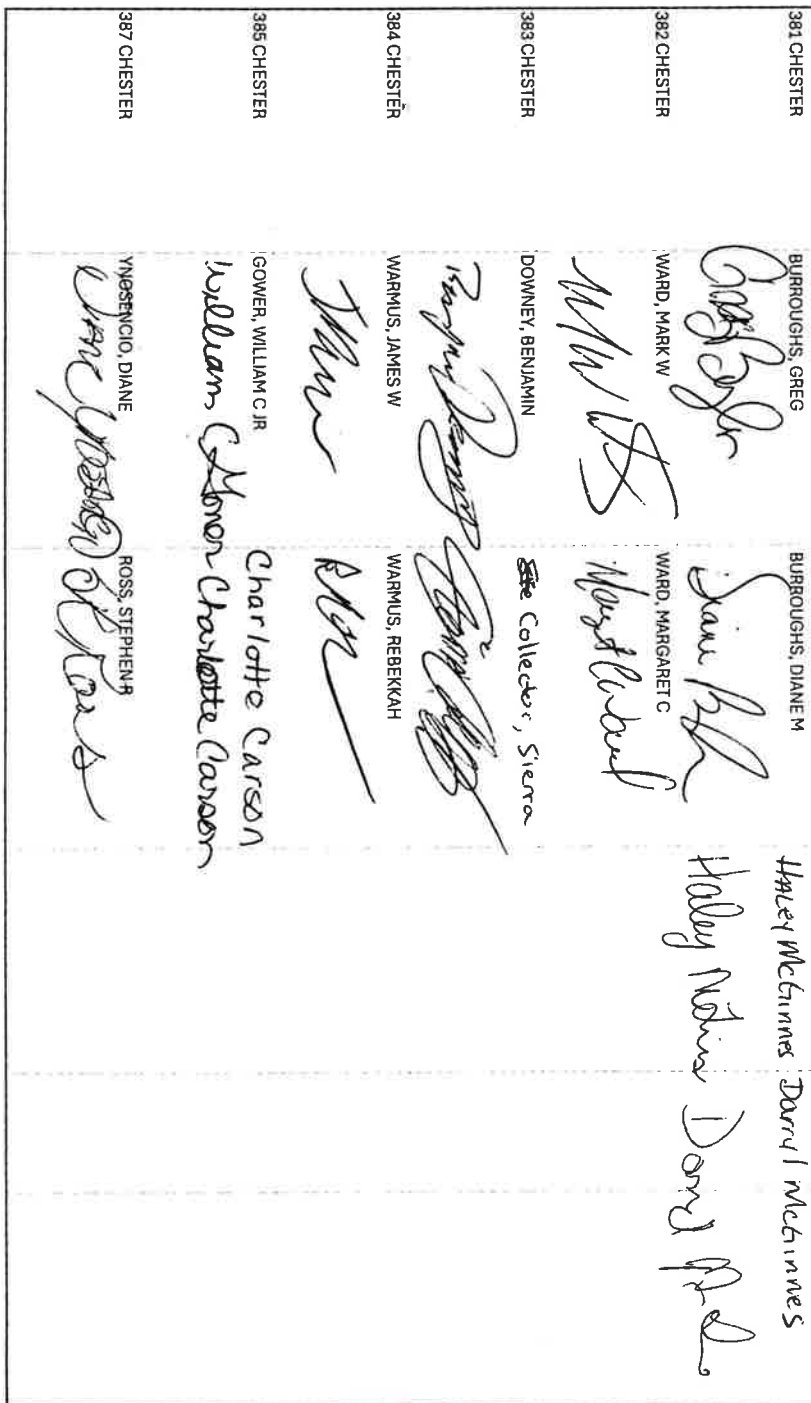 381 CHESTER BURROUGHS, GREG BURROUGHS, DIANE M HALEY McGinnes Darryl McGinnes
Haley
382 CHESTER WARD, MARK W WARD, MARGARET C
383 CHESTER DOWNEY, BENJAMIN Collector, Sierra
384 CHESTER WARMUS, JAMES W WARMUS, REBEKKAH
385 CHESTER GOWER, WILLIAM C JR Charlotte Carson
William C Gower Charlotte Carson
387 CHESTER YNOSENCIO, DIANE ROSS, STEPHEN R